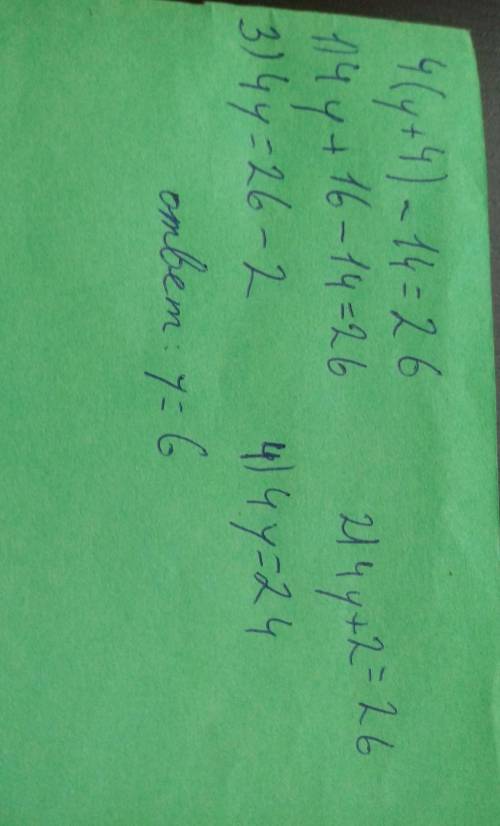 4(y+4)-14=26
1) 4y+16-14=26 2) 4y+2=26
3) 4y=26-2 4) 4y=24
ответ: y=6